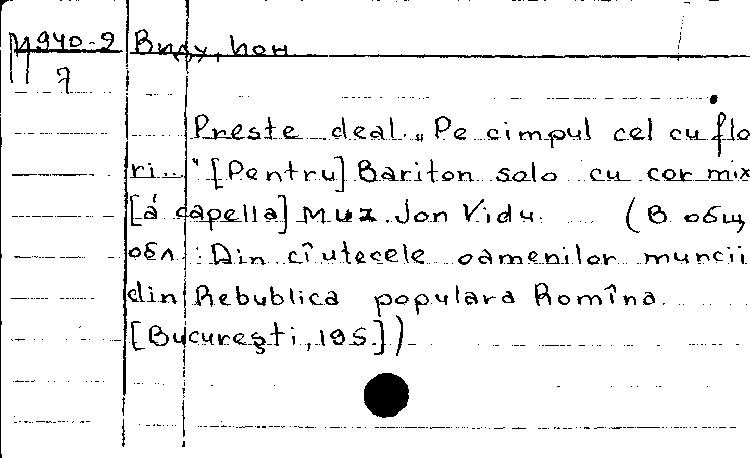 М940-9 Виду, Ион
7
Preste deal. „Pe cimpul cel cu flo
ri..." [Pentru] Bariton solo cu cor mix
[á capella] Muz. Jon Vidu. (В общ
обл: Din cîutecele oamenilor muncii
din Rebublica populara Romîna.
[Bucureşti, 195.])